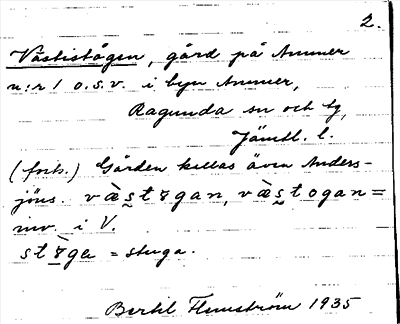 2.
Västistågen, gård på Ammer
n:r 1 o.s.v. i byn Ammer,
Ragunda sn och tg,
Jämtl. l.
(forts.) Gården kallas även Anders-
jöns. væ̀st8gan, væ̀stogan =
inv. i V.
st8̀ga = stuga.
Bertil Flemström 1935